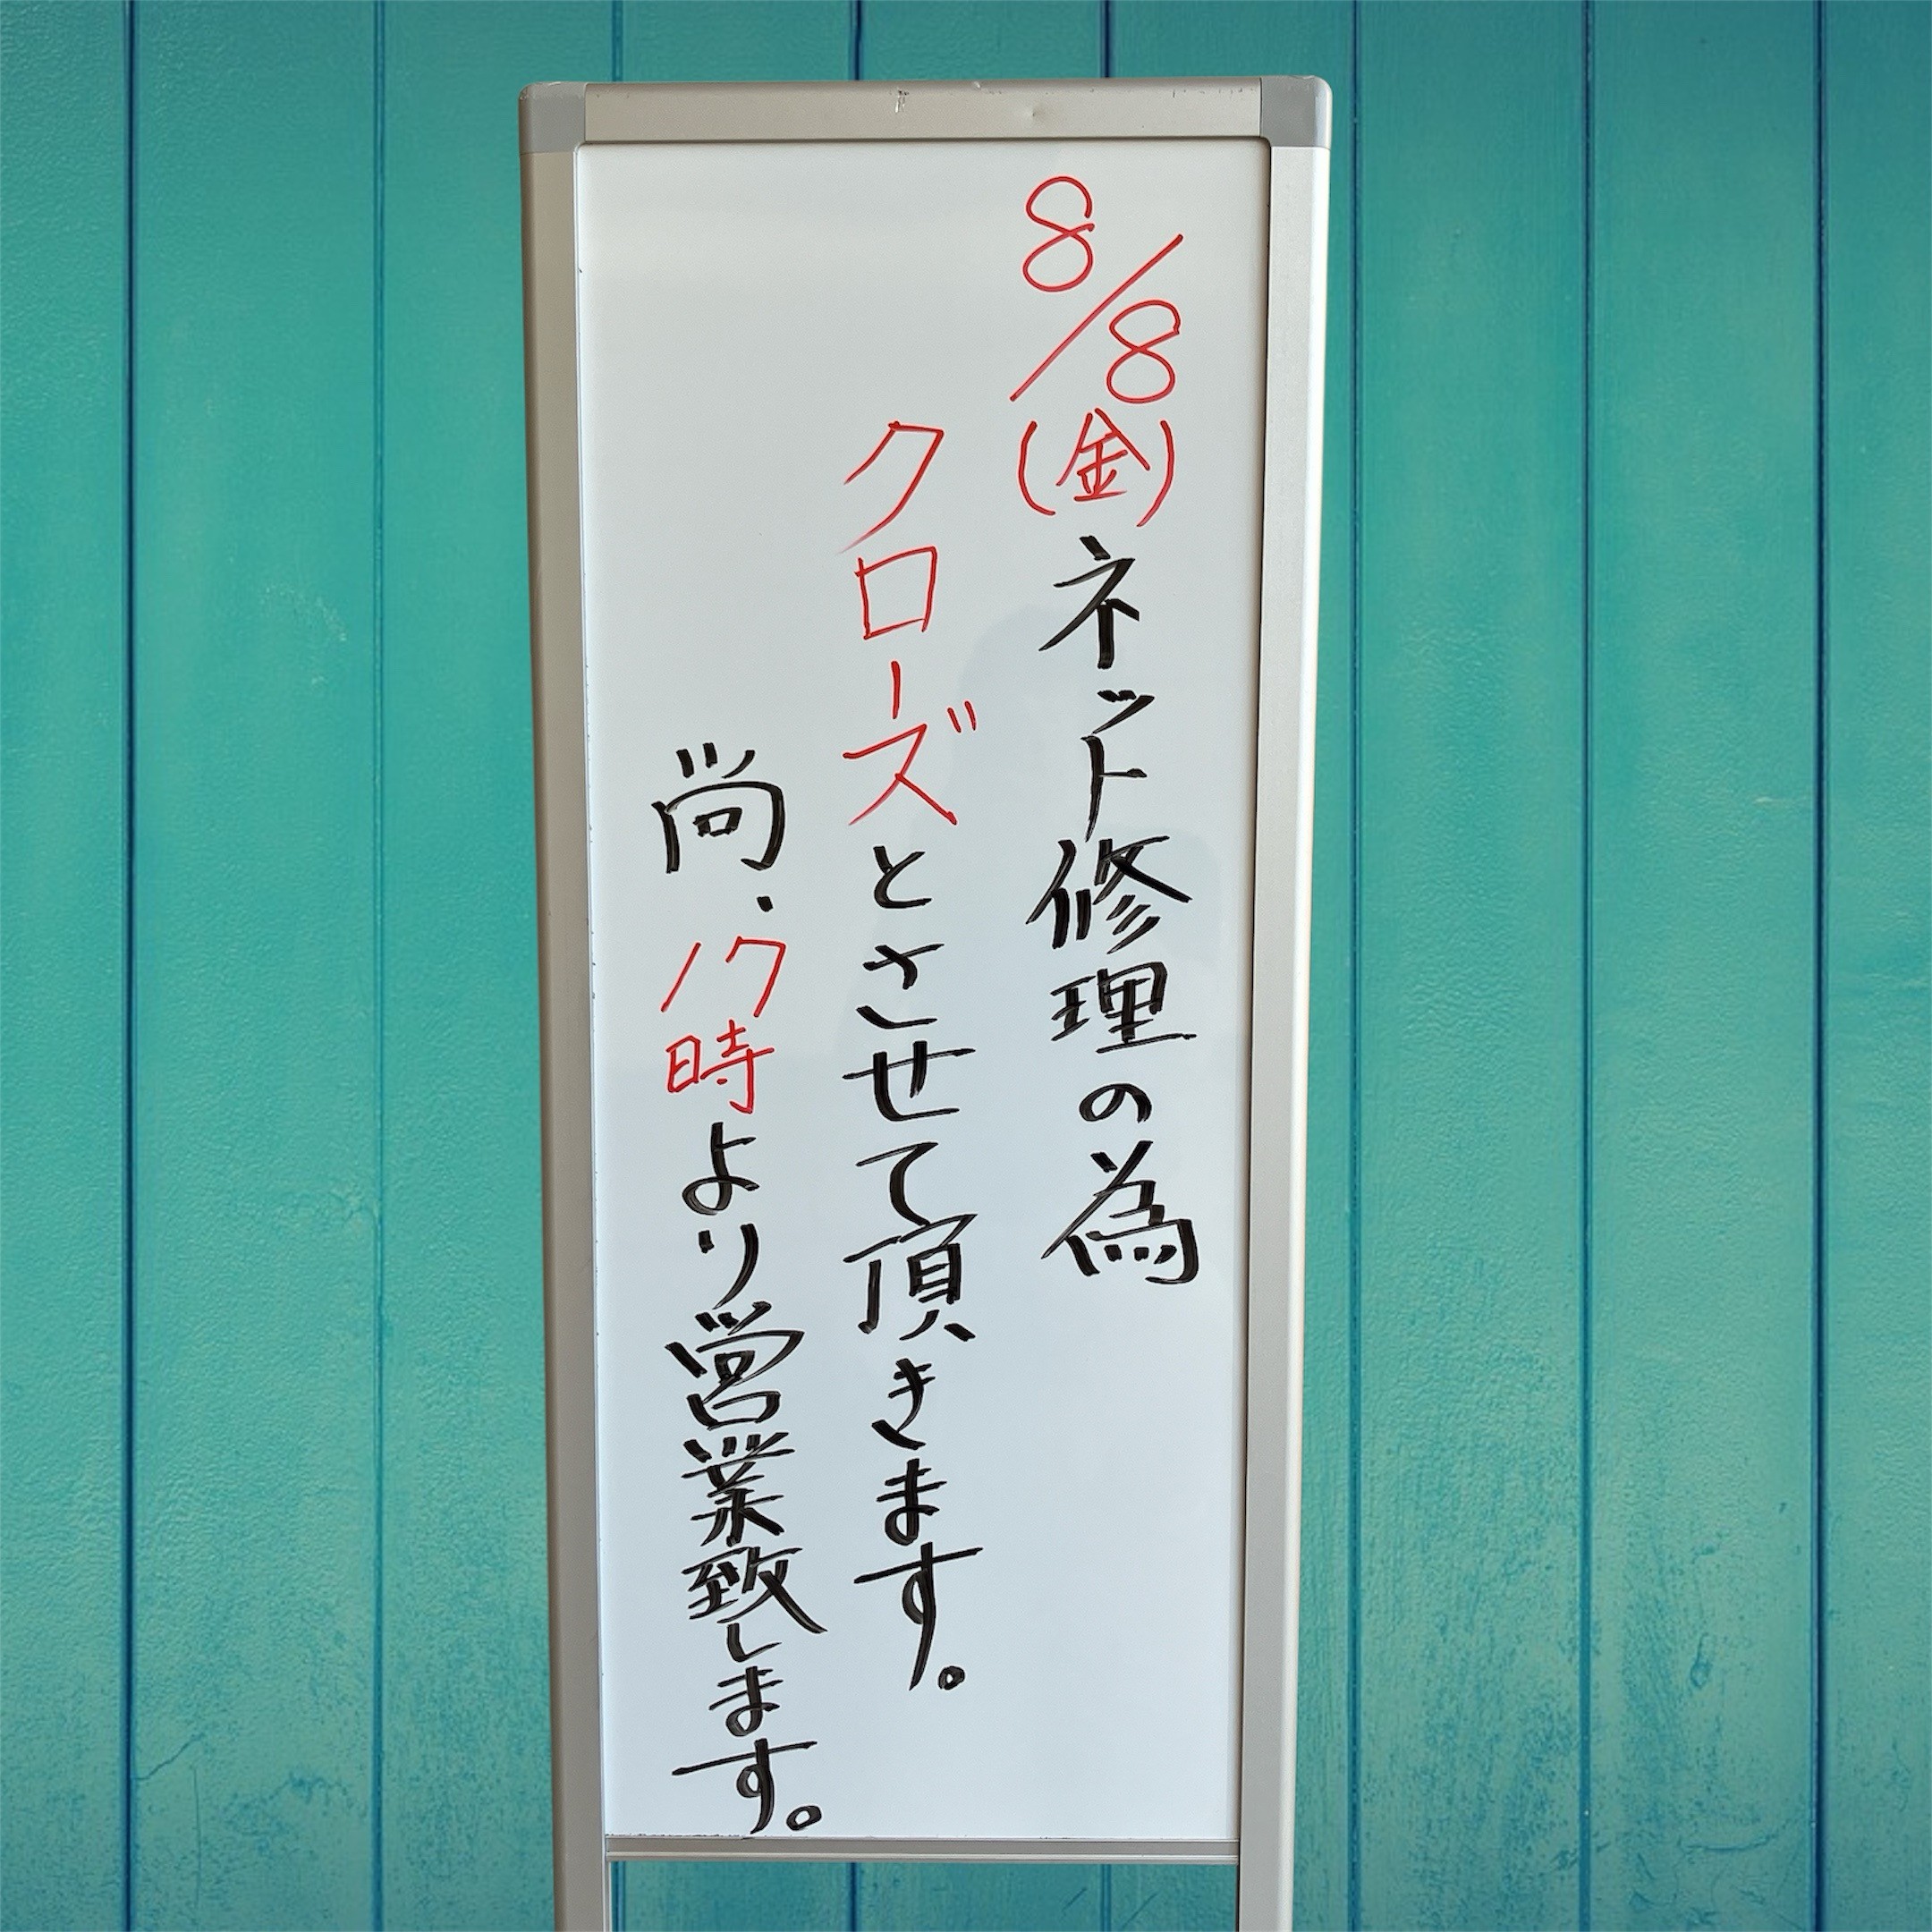 8/8(金)ネット修理の為
クローズとさせて頂きます。
尚.17時より営業致します。